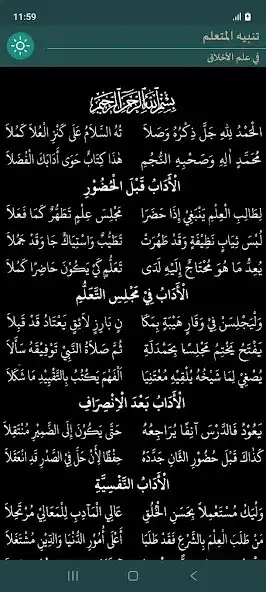 11:59
تنبيه المتعلم
في علم الأخلاق
بِسْمِ اللَّهِ الرَّحْمَنِ الرَّحِيمِ
الْحَمْدُ لِلَّهِ جَلَّ ذِكْرُهُ وَصَلَا تُهُ السَّلَامُ عَلَى كَنْزِ الْعُلَا كَمُلَا
مُحَمَّدٍ اٰلِهِ وَصَحْبِهِ النُّجُمِ هٰذَا كِتَابٌ حَوَى آدَابَكَ الْفُضَلَا
الْأَدَابُ قَبْلَ الْحُضُوْرِ
لِطَالِبِ الْعِلْمِ يَنْبَغِيْ إِذَا حَضَرَا مَجْلِسَ عِلْمٍ تَطَهُّرٌ كَمَا فَعَلَا
لُبْسُ ثِيَابٍ نَظِيْفَةٍ وَقَدْ طَهُرَتْ تَطَيُّبٌ وَاسْتِيَاكٌ جَا وَقَدْ جَمُلَا
يُعِدُّ مَا هُوَ مُحْتَاجٌ إِلَيْهِ لَدَى تَعَلُّمٍ كَيْ يَكُوْنَ حَاضِرًا كَمُلَا
الْأَدَابُ فِيْ مَجْلِسِ التَّعَلُّمِ
وَلْيَجْلِسَنْ فِيْ وَقَارِ هَيْبَةٍ بِمَكَا نٍ بَارِزٍ لَائِقٍ يَعْتَادُ قَدْ قَبِلَا
يَفْتَحُ يَخْتِمُ مَجْلِسًا بِحَمْدَلَةٍ ثُمَّ صَلَاةُ النَّبِيْ تَوْفِيْقَهُ سَأَلَا
يُصْغِيْ لِمَا شَيْخُهُ يُلْقِيْهِ مُعْتَنِيًا اَلْفَهْمَ يَكْتُبُ بِالتَّقْيِيْدِ مَا شَكَلَا
الْأَدَابُ بَعْدَ الْاِنْصِرَافِ
يَعُوْدُ فَالدَّرْسَ آنِفًا يُرَاجِعُهُ حَتَّى يَكُوْنَ إِلَى الضَّمِيْرِ مُنْتَقِلَا
كَذَاكَ قَبْلَ حُضُوْرِ الثَّانِ جَدَّدَهُ حِفْظًا لِأَنْ حَلَّ فِي الصَّدْرِ قَدِ انْعَقَلَا
الْأَدَابُ النَّفْسِيَّةِ
وَلْيَكُ مُسْتَعْمِلًا بِحَسَنِ الْخُلُقِ عَالِي الْمَآدِبِ لِلْمَعَالِيْ مُرْتَحِلَا
مَنْ طَلَبَ الْعِلْمَ بِالشَّرْعِ فَقَدْ طَلَبَا أَعْلَى أُمُوْرِ الدُّنْيَا وَالدِّيْنِ مُشْتَغَلَا